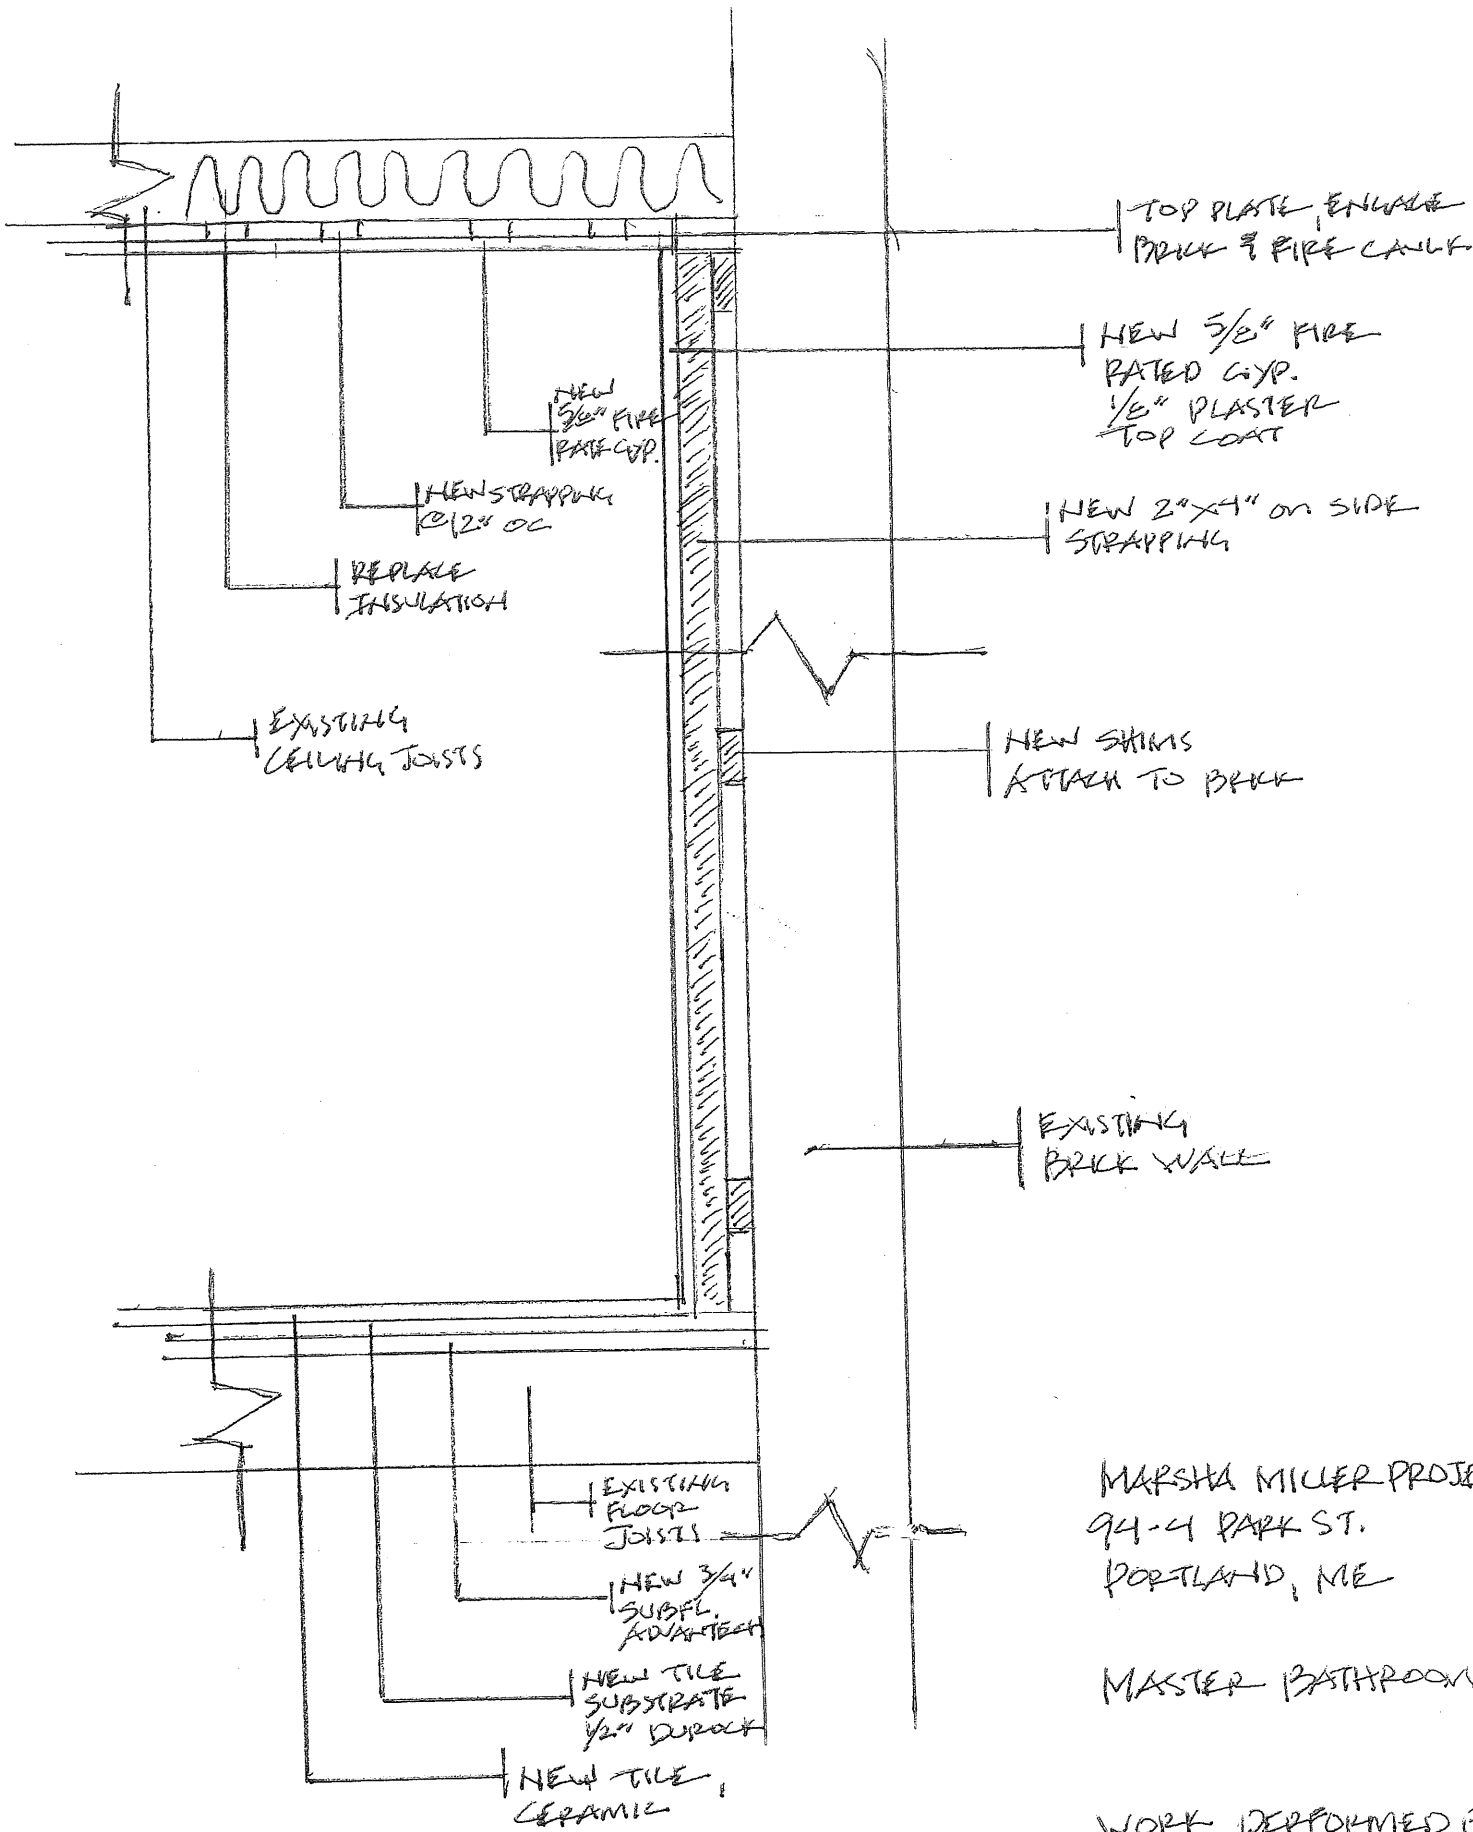 TOP PLATE, ENGAGE
BRICK & FIRE CAULK
NEW 5/8" FIRE
RATED GYP.
1/8" PLASTER
TOP COAT
NEW
5/8" FIRE
RATE GYP.
NEW STRAPPING
@ 12" OC
NEW 2"x4" on SIDE
STRAPPING
REPLACE
INSULATION
EXISTING
CEILING JOISTS
NEW SHIMS
ATTACH TO BRICK
EXISTING
BRICK WALL
EXISTING
FLOOR
JOISTS
NEW 3/4"
SUBFL.
ADVANTECH
NEW TILE
SUBSTRATE
1/2" DUROCK
NEW TILE,
CERAMIC
MARSHA MILLER PROJE
94-4 PARK ST.
PORTLAND, ME
MASTER BATHROOM
WORK PERFORMED